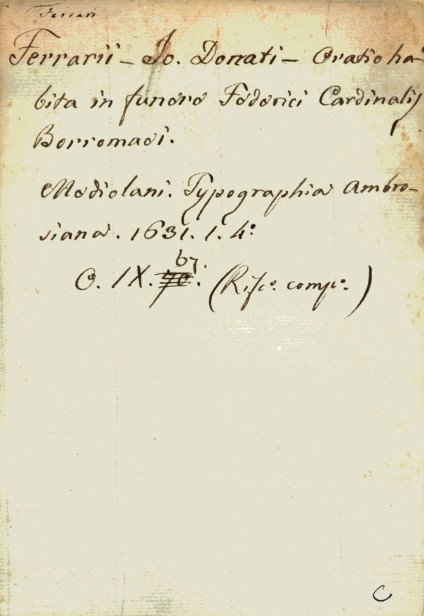 Ferrari
Ferrarii - Jo. Donati - Oratio ha-
bita in funere Federici Cardinalis
Borromaei.
Mediolani. Typographia Ambro-
siana. 1631. 1. 4º
O. IX. 67. (Risc. compº.)
C